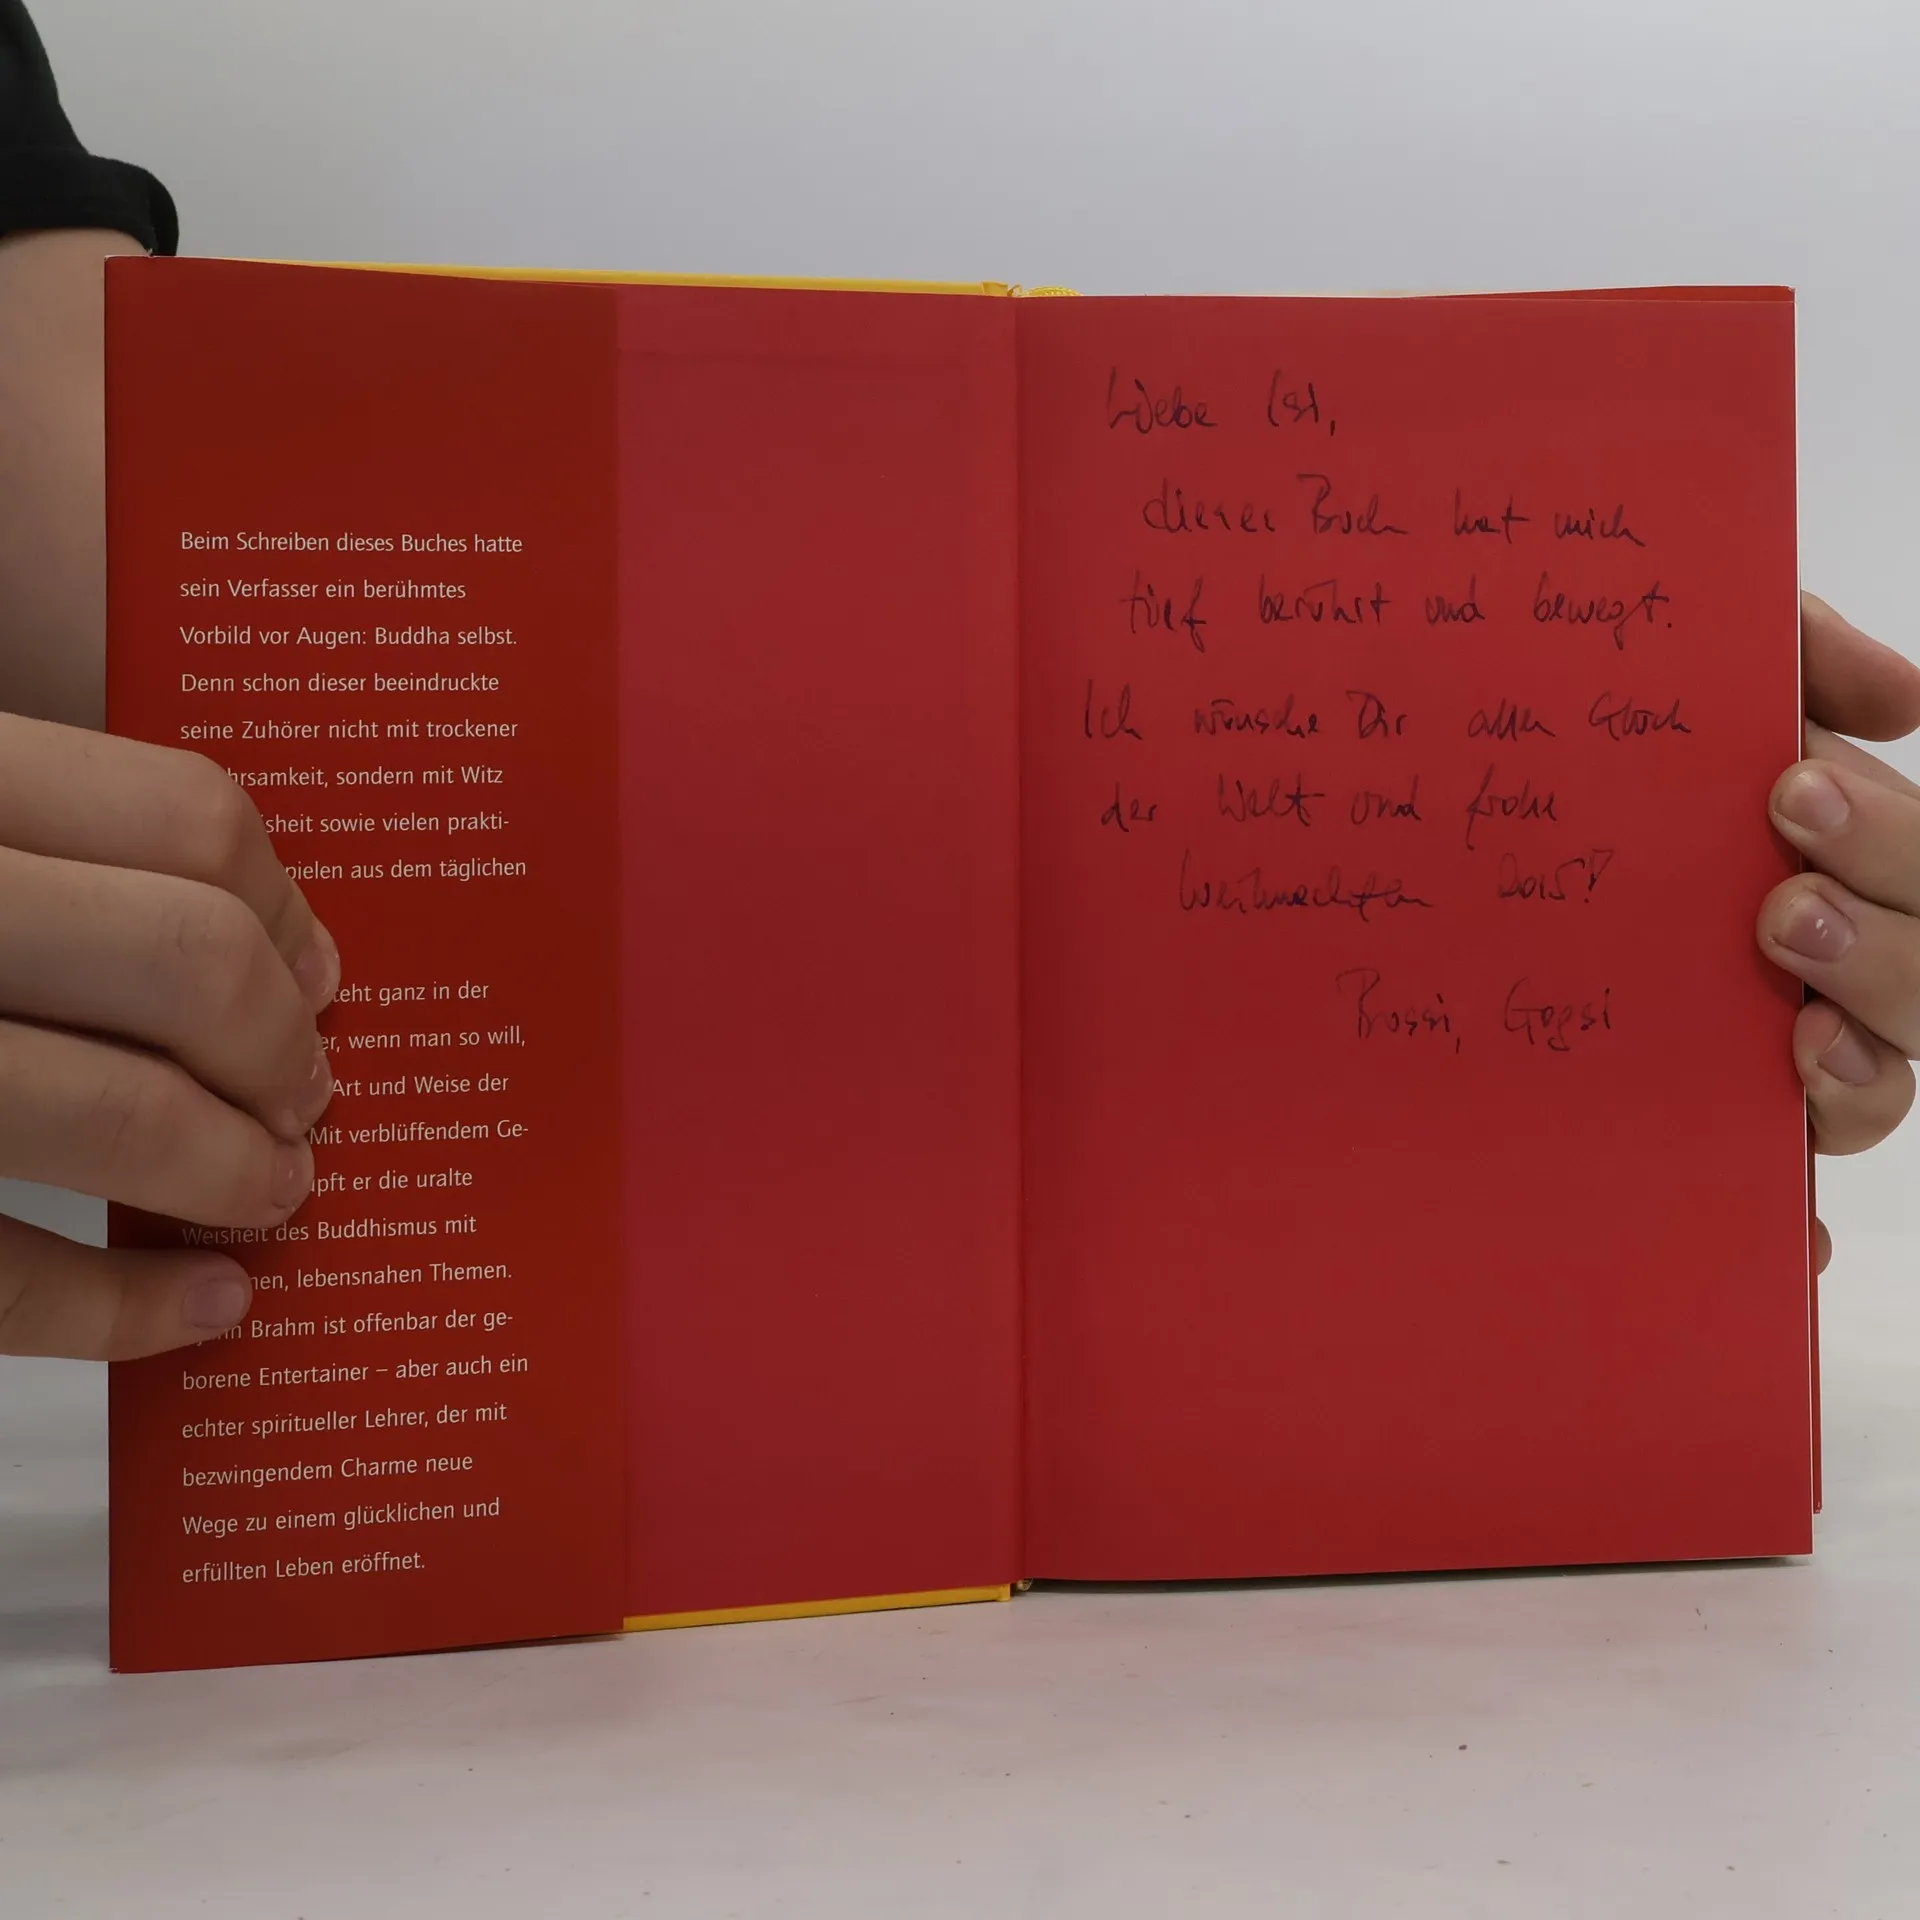 Beim Schreiben dieses Buches hatte
sein Verfasser ein berühmtes
Vorbild vor Augen: Buddha selbst.
Denn schon dieser beeindruckte
seine Zuhörer nicht mit trockener
hrsamkeit, sondern mit Witz
sheit sowie vielen prakti-
pielen aus dem täglichen
teht ganz in der
er, wenn man so will,
Art und Weise der
Mit verblüffendem Ge-
pft er die uralte
Weisheit des Buddhismus mit
nen, lebensnahen Themen.
Brahm ist offenbar der ge-
borene Entertainer – aber auch ein
echter spiritueller Lehrer, der mit
bezwingendem Charme neue
Wege zu einem glücklichen und
erfüllten Leben eröffnet.
Liebe Isi,
dieses Buch hat mich
tief berührt und bewegt.
Ich wünsche Dir alles Glück
der Welt und frohe
Weihnachten 2015!
Bussi, Gogsi